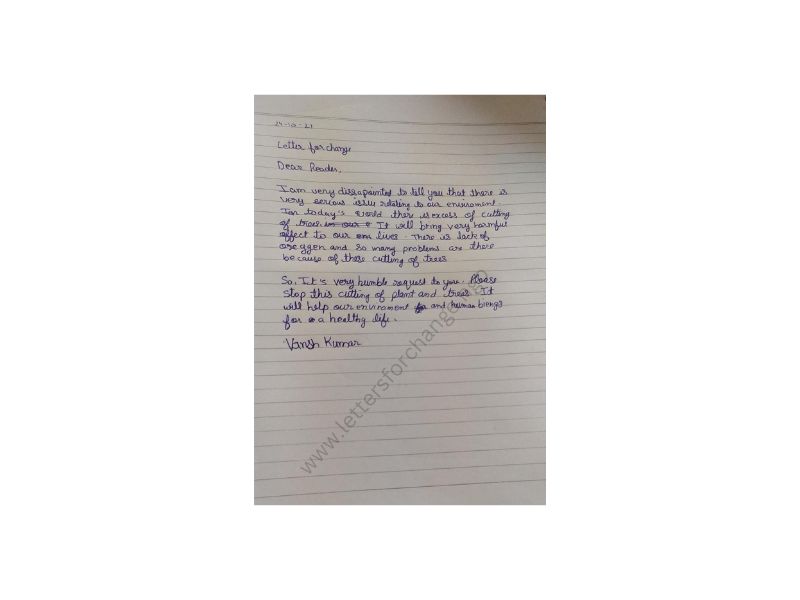 24-10-21
Letter for change
Dear Reader,
I am very dissapointed to tell you that there is
very serious issue relating to our enviroment.
In today's world ther is excess of cutting
of trees in our It will bring very harmful
effect to our lives. There is lack of
oxeggen and so many problems are there
because of these cutting of trees
So, It's very humble request to you. Please
stop this cutting of plant and trees. It
will help our enviroment and human biengs
for a healthy life.
Vansh Kumar
www.lettersforchange